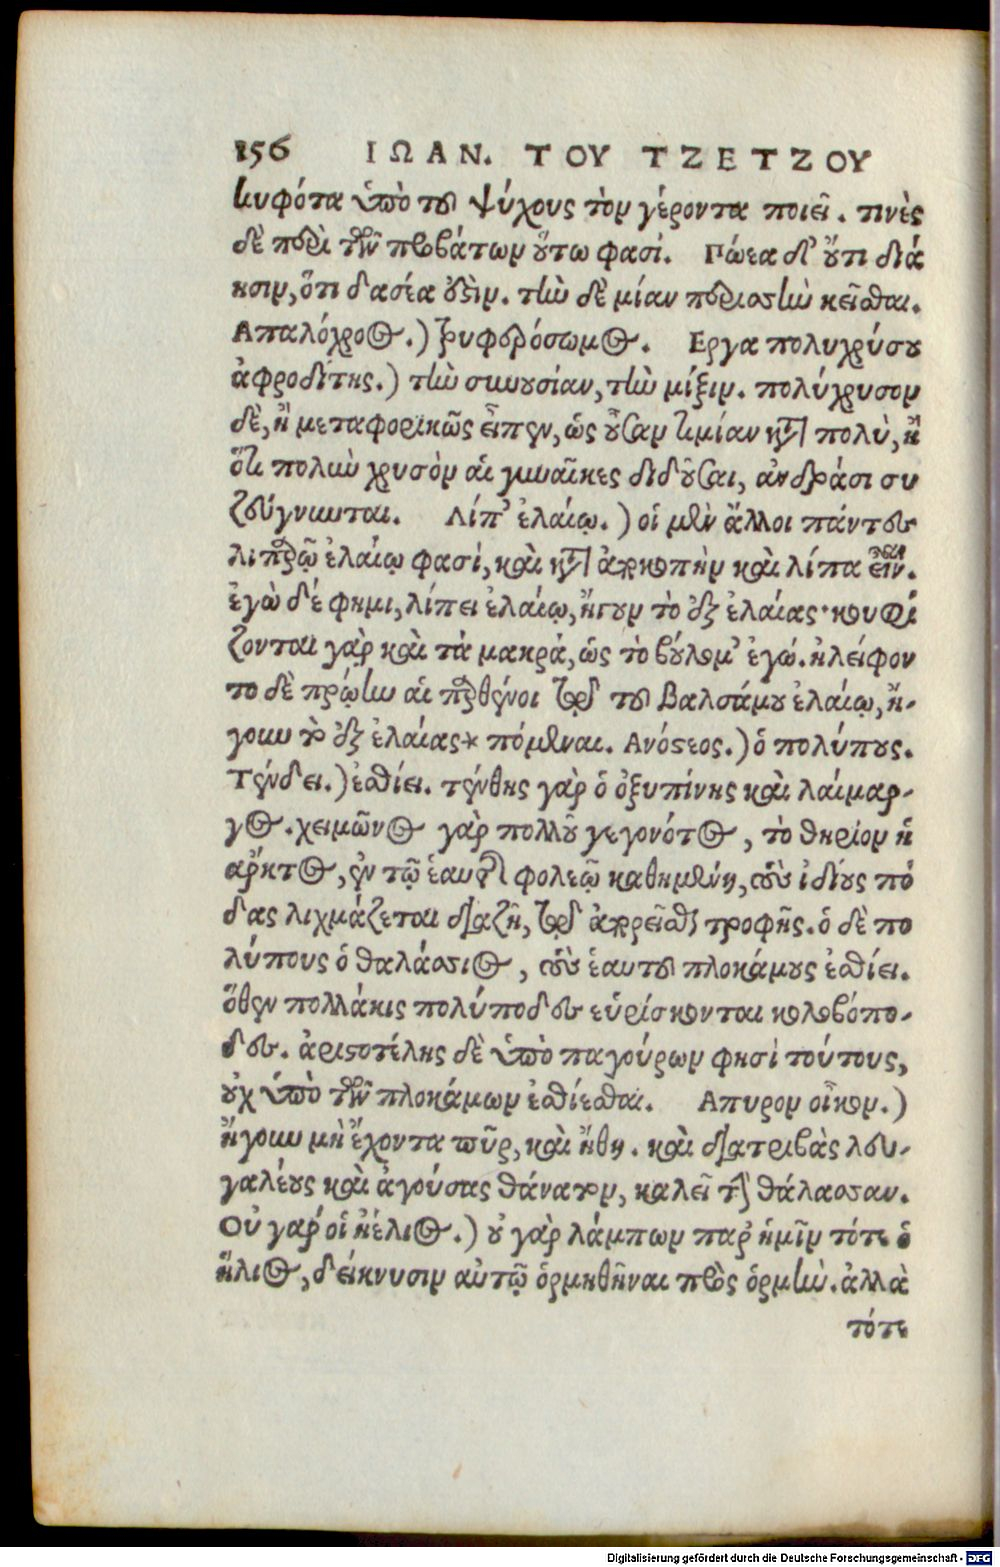 156 ΙΩΑΝ. ΤΟΥ ΤΖΕΤΖΟΥ
κυφότα ὑπὸ τοῦ ψύχους τὸν γέροντα ποιεῖ. τινὲς
δὲ περὶ τῶν προβάτων οὕτω φασί. Πώεα δ' οὔτι διά
ησιν, ὅτι δασέα οὐδὲν. τὴν δὲ μίαν περισσὴν κεῖσθαι.
Απαλόχροος.) τρυφερόσωμος. Εργα πολυχρύσου
ἀφροδίτης.) τὴν συνουσίαν, τὴν μίξιν. πολύχρυσον
δὲ, ἢ μεταφορικῶς εἶπεν, ὡς οὖσαν τιμίαν κατὰ πολὺ, ἢ
ὅτι πολὺν χρυσὸν αἱ γυναῖκες διδοῦσαι, ἀνδράσι συ
ζεύγνυνται. Λίπ' ἐλαίῳ.) οἱ μὲν ἄλλοι πάντες
λιπαρῷ ἐλαίῳ φασί, καὶ κατὰ ἀποκοπὴν καὶ λίπα εἶναι.
ἐγὼ δέ φημι, λίπει ἐλαίῳ, ἤγουν τὸ ἐξ ἐλαίας· κουφί
ζονται γὰρ καὶ τὰ μακρά, ὡς τὸ βούλομ' ἐγώ. ἠλείφον
το δὲ πρώην αἱ παρθένοι διὰ τοῦ βαλσάμου ἐλαίῳ, ἤ-
γουν τὸ ἐξ ἐλαίας* πόμεναι. Ανόστεος.) ὁ πολύπους.
Τένδει.) ἐσθίει. τένθης γὰρ ὁ ὀξυπίνης καὶ λαίμαρ-
γος. χειμῶνος γὰρ πολλοῦ γεγονότος, τὸ θηρίον ἡ
ἄρκτος, ἐν τῷ ἑαυτῆς φολεῷ καθημένη, τοὺς ἰδίους πό
δας λιχμάζεται διαζῆν, διὰ ἀπορεῖσθαι τροφῆς. ὁ δὲ πο
λύπους ὁ θαλάσσιος, τοὺς ἑαυτοῦ πλοκάμους ἐσθίει.
ὅθεν πολλάκις πολύποδες εὑρίσκονται κολοβόπο-
δες. ἀριστοτέλης δὲ ὑπὸ παγούρων φησὶ τούτους,
οὐχ ὑπὸ τῶν πλοκάμων ἐσθίεσθαι. Απυρον οἶκον.)
ἤγουν μὴ ἔχοντα πῦρ, καὶ ἤθη. καὶ διατριβὰς λευ-
γαλέους καὶ ἀγούσας θάνατον, καλεῖ τὴν θάλασσαν.
Οὐ γάρ οἱ ἠέλιος.) οὐ γὰρ λάμπων παρ' ἡμῖν τότε ὁ
ἥλιος, δείκνυσιν αὐτῷ ὁρμηθῆναι πρὸς ὁρμὴν. ἀλλὰ
τότε
Digitalisierung gefördert durch die Deutsche Forschungsgemeinschaft - DFG